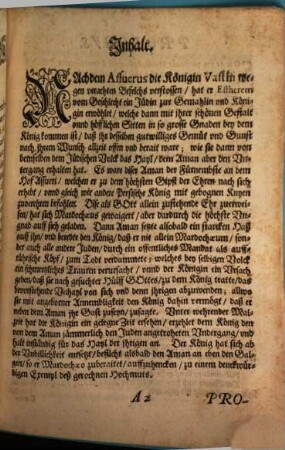 Inhalt.
NAchdem Assuerus die Königin Vasthi we-
gen verachten Befelchs verstossen / hat er Estherem
vom Geschlecht ein Jüdin zur Gemahlin und Köni-
gin erwöhlet / welche dann mit ihrer schönen Gestalt
und höfflichen Sitten in so grosse Gnaden bey dem
König kommen ist / daß ihr desselben gutwilliges Gemüt und Gunst
nach ihrem Wunsch allzeit offen und berait ware; wie sie dann von
demselben dem Jüdischen Volck das Hayl / dem Aman aber den Un-
tergang erhalten hat. Es ware diser Aman der Fürnembste an dem
Hof Assueri / welchen er zu dem höchsten Gipfl der Ehren nach sich
erhebt / unnd gleich wie andere Persische König mit gebognen Knyen
zuverehren befohlen. Dise als GOtt allein zustehende Ehr zuerwei-
sen / hat sich Mardochæus gewaigert / aber dardurch die höchste Un-
gnad auff sich geladen. Dann Aman setzte alsobald ein starcken Haß
auff ihn / und beredte den König / daß er nit allein Mardochæum / son-
der auch alle andere Juden / durch ein offentliches Mandat als auffs
rührische Köpf / zum Todt verdammete; welches bey selbigen Volck
ein jämmerliches Trauren verursacht / unnd der Königin ein Ursach
geben / daß sie nach gesuchter Hülff GOttes / zu dem König tratte / das
bevorstehende Unhayl von sich und denen ihrigen abzuwenden; allwo
sie mit angeborner Annemblichkeit den König dahin vermögt / daß er
neben dem Aman ihr Gast zuseyn / zusagte. Unter wehrender Mal-
zeit hat die Königin ein gelegne Zeit ersehen / erzehlet dem König den
von dem Aman jämmerlich den Juden angetroheten Untergang / und
halt inständig für das Hayl der ihrigen an. Der König hat sich ab
der Unbillichkeit entsetzt / befilchs alsbald den Aman an eben den Gal-
gen / so er Mardochæo zuberaitet / auffzuhencken / zu einem denckwür-
digen Exempl deß gerochnen Hochmuts.
A 2 PRO-